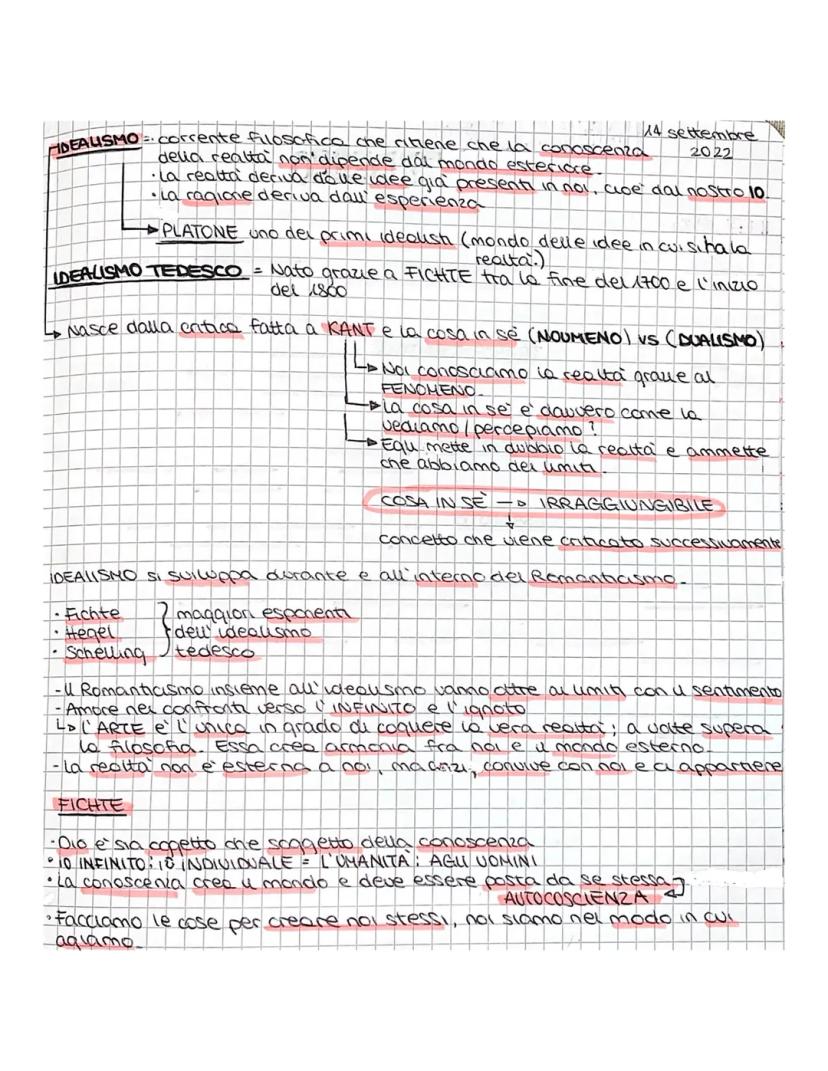 14 settembre
IDEALISMO = corrente filosofica che ritiene che la conoscenza 2022
della realtà non dipende dal mondo esteriore.
• La realtà deriva dalle idee già presenti in noi, cioè dal nostro IO.
• La ragione deriva dall'esperienza
PLATONE uno dei primi idealisti (mondo delle idee in cui si ha la
realtà.)
IDEALISMO TEDESCO = Nato grazie a FICHTE tra la fine del 1700 e l'inizio
del 1800
Nasce dalla critica fatta a KANT e la cosa in sé (NOUMENO) vs (DUALISMO)
Noi conosciamo la realtà grazie al
FENOMENO.
La cosa in sè è davvero come la
vediamo/percepiamo?
Egli mette in dubbio la realtà e ammette
che abbiamo dei limiti.
COSA IN SÈ → IRRAGGIUNGIBILE
↓
concetto che viene criticato successivamente
IDEALISMO si sviluppa durante e all'interno del Romanticismo.
• Fichte } maggiori esponenti
• Hegel } dell'idealismo
• Schelling } tedesco
- Il Romanticismo insieme all'idealismo vanno oltre ai limiti con il sentimento
- Amore nei confronti verso l'INFINITO e l'ignoto
↳ L'ARTE è l'unica in grado di cogliere la vera realtà; a volte supera
la filosofia. Essa crea armonia fra noi e il mondo esterno.
- La realtà non è esterna a noi, ma anzi, convive con noi e ci appartiene
FICHTE
• Dio è sia oggetto che soggetto della conoscenza
• IO INFINITO: IO INDIVIDUALE = L'UMANITÀ: AGLI UOMINI
• La conoscenza crea il mondo e deve essere posta da se stessa
AUTOCOSCIENZA
• Facciamo le cose per creare noi stessi, noi siamo nel modo in cui
agiamo.